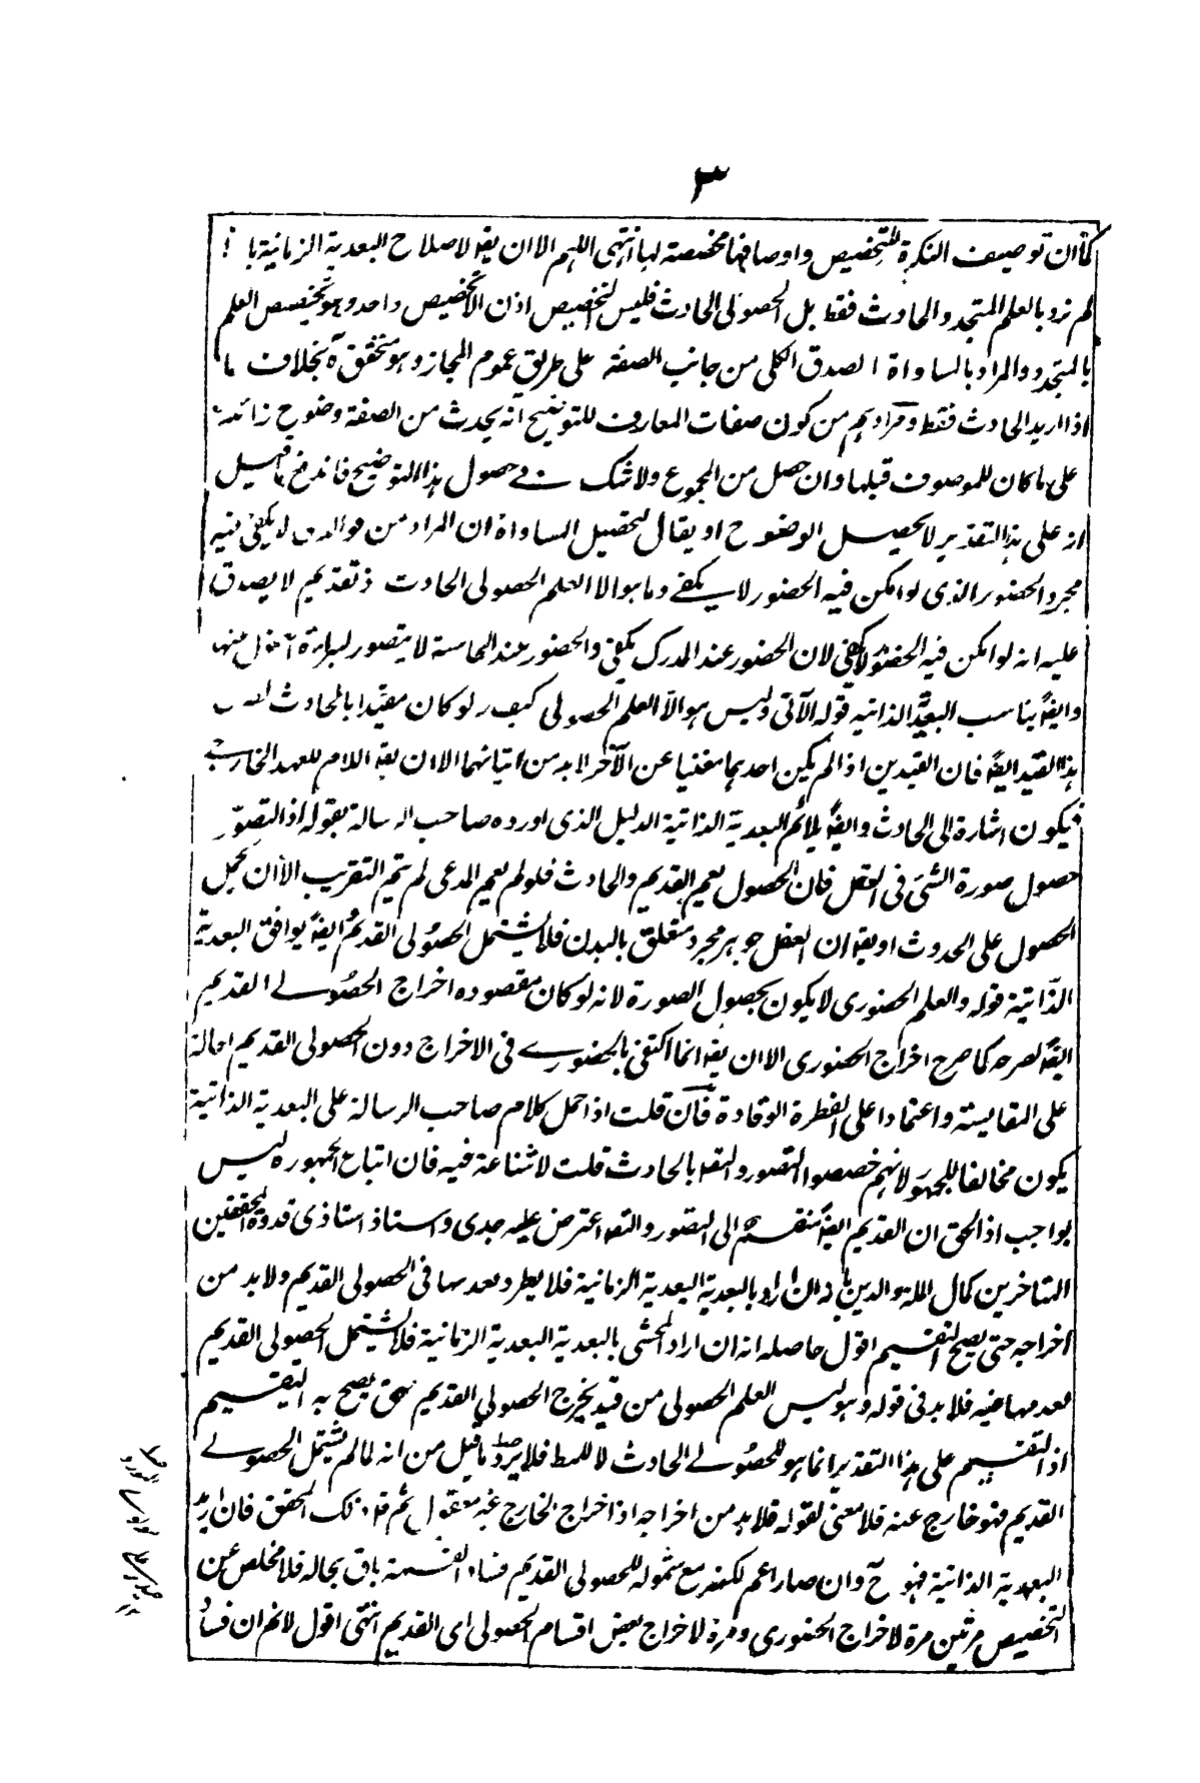 ٣
كما ان توصيف النكرة للتخصيص واوصافها مخصصة لها انتهى اللهم الا ان يقه لاصلاح البعدية الزمانية با
لم نرد بالعلم المتجدد والحادث فقط بل الحصولى الحادث فليس التخصيص اذن الا تخصيص واحد وهو تخصيص العلم
بالمتجدد والمراد بالمساواة الصدق الكلى من جانب الصفة على طريق عموم المجاز وهو متحقق ة بخلاف ما
اذا اريد الحادث فقط ومرادهم من كون صفات المعارف للتوضيح انه يحدث من الصفة وضوح زائد
على ما كان للموصوف قبلها وان حصل من المجموع ولا شك فى حصول هذا التوضيح فاندفع ما قيل
انه على هذا التقدير لا يحصل الوضوح او يقال لتحصيل المساواة ان المراد من قوله الذى لا يكفى فيه
مجرد الحضور الذى لو امكن فيه الحضور لا يكفى وما هو الا العلم الحصولى الحادث اذ القديم لا يصدق
عليه انه لو امكن فيه الحضور لا يكفى لان الحضور عند المدرك يكفى والحضور عند الحاسة لا يتصور لبراءة العقول عنها
وايضه يناسب البعدية الذاتية قوله الآتى وليس هو الا العلم الحصولى كيف ولو كان مقيدا بالحادث
هذا القيد ايضه فان القيدين اذا لم يكن احدهما مغنيا عن الآخر لابد من اتيانهما الا ان يقه اللام للعهد الخارجى
فيكون اشارة الى الحادث وايضه يلائم البعدية الذاتية الدليل الذى اورده صاحب الرسالة بقوله اذ التصور
حصول صورة الشئ فى العقل فان الحصول يعم القديم والحادث فلو لم يعم المدعى لم يتم التقريب الا ان يحمل
الحصول على الحدوث او يقه ان العقل جوهر مجرد متعلق بالبدن فلا يشتمل الحصولى القديم وايضه يوافق البعدية
الذاتية قوله والعلم الحضورى لا يكون بحصول الصورة لانه لو كان مقصوده اخراج الحصولى القديم
ايضه لصرحه كما صرح اخراج الحضورى الا ان يقه انما اكتفى بالحضورى فى الاخراج دون الحصولى القديم احالة
على المقايسة واعتمادا على الفطرة الوقادة فان قلت اذا حمل كلام صاحب الرسالة على البعدية الذاتية
يكون مخالفا للجمهور لانهم خصصوا التصور والتصه بالحادث قلت لا شناعة فيه فان اتباع الجمهور ليس
بواجب اذ الحق ان القديم ايضه منقسم الى التصور والتصه اعترض عليه جدى واستاذ استاذى قدوة المحققين
المتاخرين كمال الملة والدين بانه ان اراد بالبعدية البعدية الزمانية فلا يطرد لعدمها فى الحصولى القديم ولابد من
اخراجه حتى يصح التقسيم اقول حاصله انه ان اراد المحشى بالبعدية البعدية الزمانية فلا يشتمل الحصولى القديم
لعدمها فيه فلابد فى قوله وهو ليس العلم الحصولى من قيد يخرج الحصولى القديم حتى يصح به التقسيم
اذ التقسيم على هذا التقدير انما هو للحصولى الحادث لا للمط فلا يرد ما قيل من انه لما لم يشتمل الحصولى
القديم فهو خارج عنه فلا معنى لقوله فلابد من اخراجه اذ اخراج الخارج غير معقول ثم قال ذلك المحقق فان اريد
البعدية الذاتية فهو ح وان صار اعم لكنه مع شموله للحصولى القديم فساد القسمة باق بحاله فلا مخلص عن
التخصيص مرتين مرة لاخراج الحضورى ومرة لاخراج بعض اقسام الحصولى اى القديم انتهى اقول لانم ان فساد